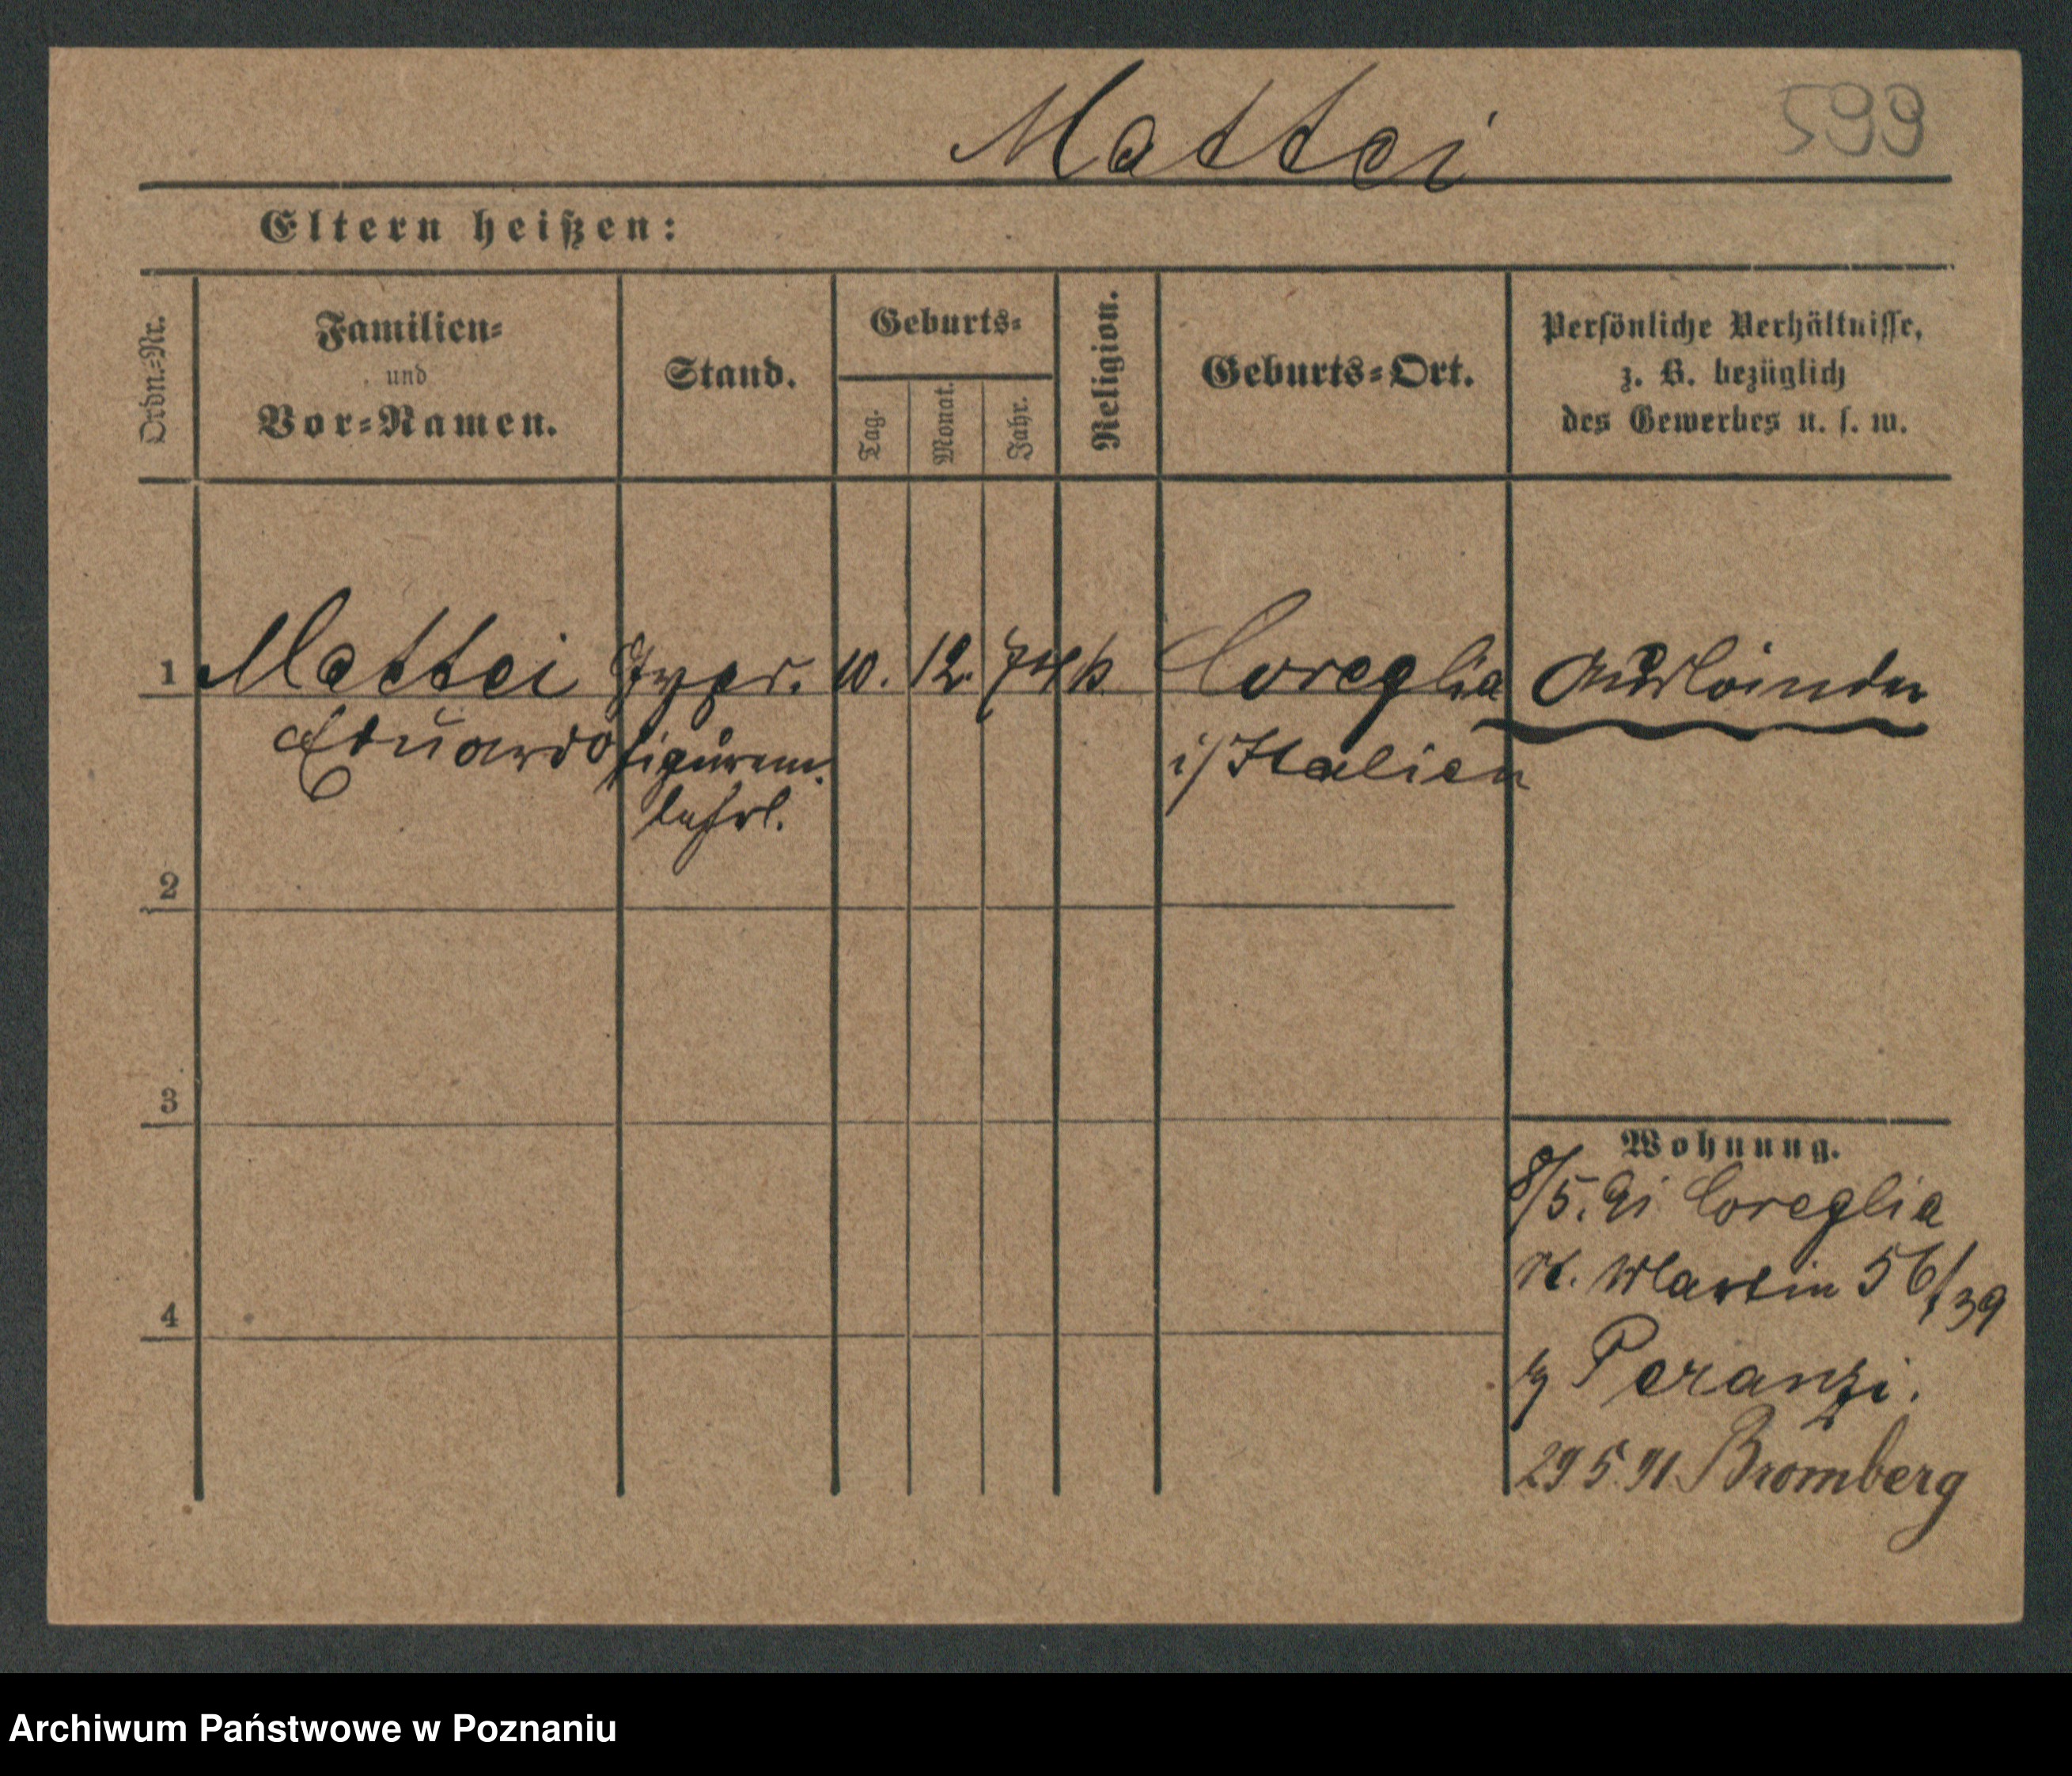 Mattei
599
Eltern heißen:
Ordn.=Nr.
Familien=
und
Vor=Namen.
Stand.
Geburts=
Tag.
Monat.
Jahr.
Religion.
Geburts=Ort.
Persönliche Verhältnisse,
z. B. bezüglich
des Gewerbes u. s. w.
1 Mattei Gyps- 10. 12. 74 k Coreglia Ausländer
Eduardo figuren. i/ Italien
lehrl.
2
3
4
Wohnung.
8/5. 91 Coreglia
St. Martin 56/39
Peranzi.
29 5 91 Bromberg
Archiwum Państwowe w Poznaniu